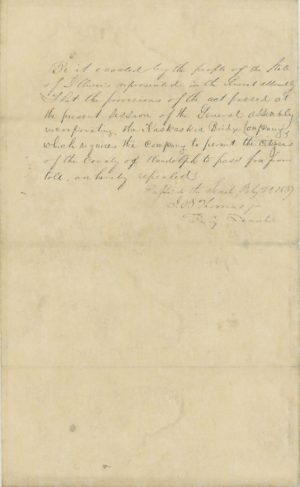 Be it enacted by the people of the State
of Illinois represented in the General Assembly
That the provisions of the act passed at
the present Session of the General Assembly
incorporating the Kaskaskia Bridge Company
which requires the Company to permit the Citizens
of the County of Randolph to pass free from
toll, are hereby repealed
Passed the Senate, Feby 1837
J. B. Thomas Jr